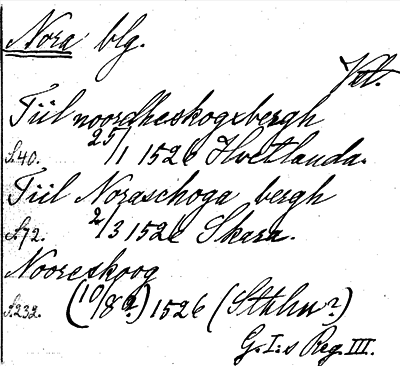 Nora blg.
Vstl.
Tiil noordheskogxbergh
S.40. 25/1 1526 Hvetlanda.
Tiil Noraschoga bergh
S.72. 2/3 1526 Skara.
Nooreskoog
S.232. (10/8 ?) 1526 (Sthlm?)
G. I:s Reg. III.